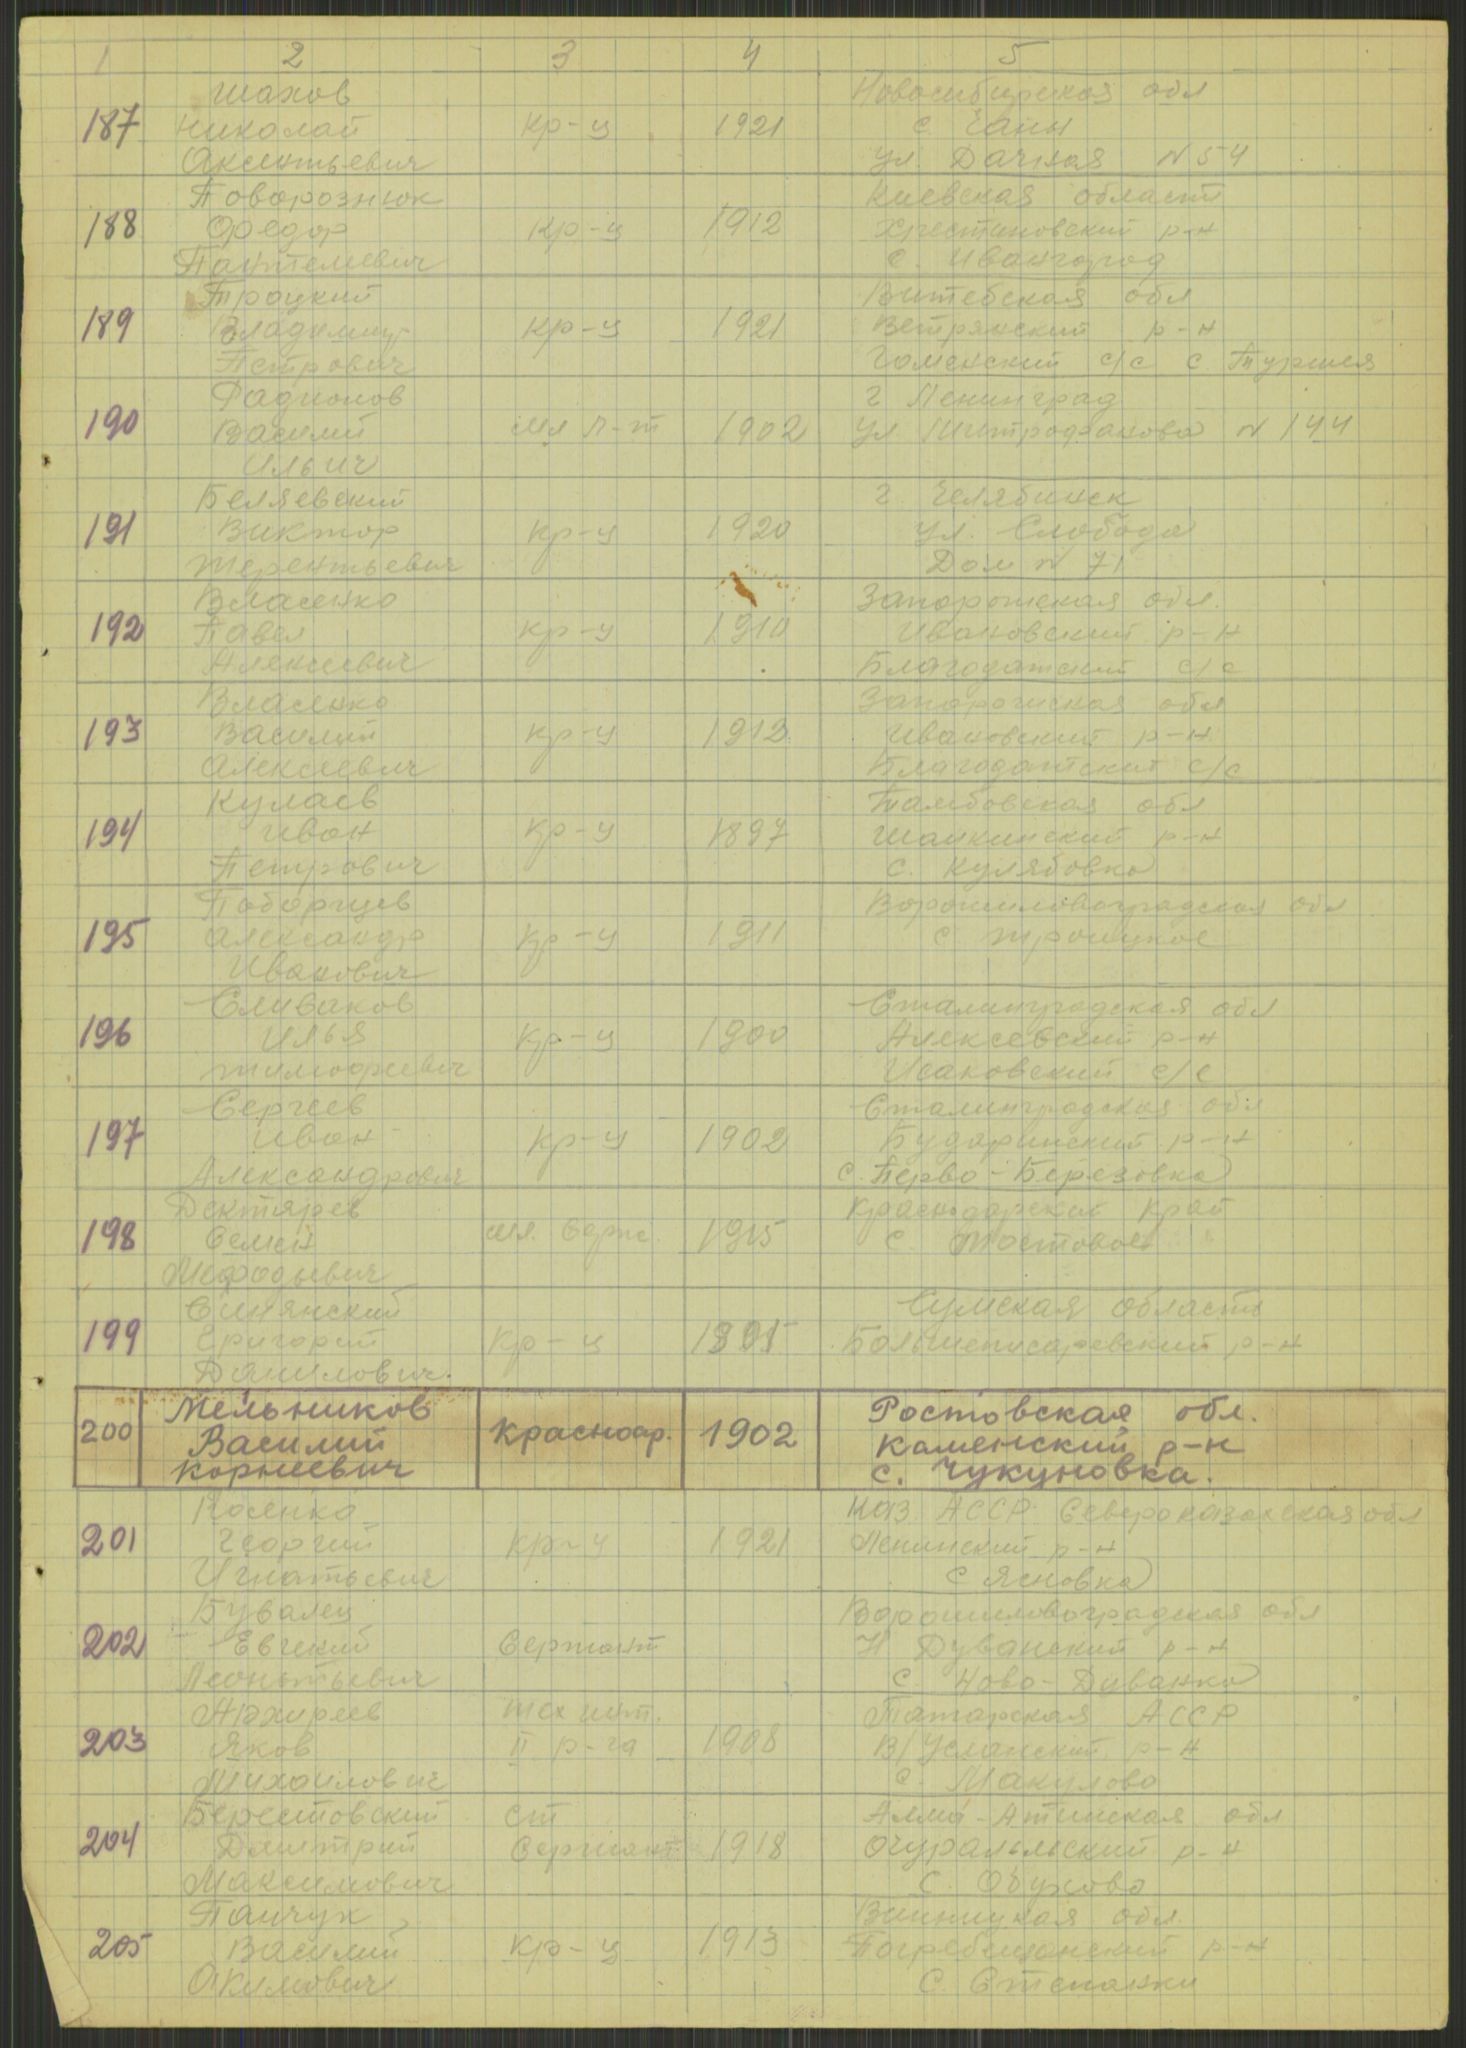 1 2 3 4 5
Шахов Новосибирская обл
187 Николай кр-ц 1921 с. Чаны
Аксентьевич ул. Дачная N 54
Поворознюк Киевская область
188 Федор кр-ц 1912 Христиновский р-н
Пантелеевич с. Ивангород
Троцкий Витебская обл
189 Владимир кр-ц 1921 Ветрянский р-н
Петрович Гомелский с/с с. Туржея
Фадионов г Ленинград
190 Василий мл л-т 1902 ул Митрофанова N 144
Ильич
Беляевский г. Челябинск
191 Виктор кр-ц 1920 ул. Слобода
Терентьевич Дом N 71
Власенко Запорожская обл.
192 Павел кр-ц 1910 Ивановский р-н
Алексеевич Благодатский с/с
Власенко Запорожская обл
193 Василий кр-ц 1912 Ивановский р-н
Алексеевич Благодатский с/с
Кулаев Тамбовская обл
194 Иван кр-ц 1897 р-н
Петрович с. Кулябовка
Поборцев Ворошиловоградская обл
195 Александр кр-ц 1911 с Троицкое
Иванович
Сливаков Сталинградская обл
196 Илья кр-ц 1900 Алексеевский р-н
Тимофеевич Исаковский с/с
Сергеев Сталинградская обл
197 Иван кр-ц 1902 Бударинский р-н
Александрович с. Перво-Березовка
Дектярев Краснодарский край
198 Семен мл. серж. 1915 с. Мостовое
Мефодьевич
Синянский Сумская область
199 Григорий кр-ц Большеписаревский р-н
Данилович.
Мельников Ростовская обл.
200 Василий Красноар. 1902 Каменский р-н
Корнеевич с. Чукуновка.
Косенко Каз. АССР Североказахская обл
201 Георгий кр-ц 1921 Ленинский р-н
Игнатьевич с Ясновка
Бувалец Ворошиловоградская обл
202 Евгений Сержант Н Дуванский р-н
Леонтьевич с. Ново-Дуванка
Архиреев тех инт. Татарская АССР
203 Яков II р-га 1908 В/Услонский р-н
Михайлович с. Макулово
Берестовский ст Алма-Атинская обл
204 Дмитрий Сержант 1918 р-н
Максимович с. Обухово
Панчук Винницкая обл.
205 Василий кр-ц 1913 Погребищанский р-н
Акимович с. Степанки